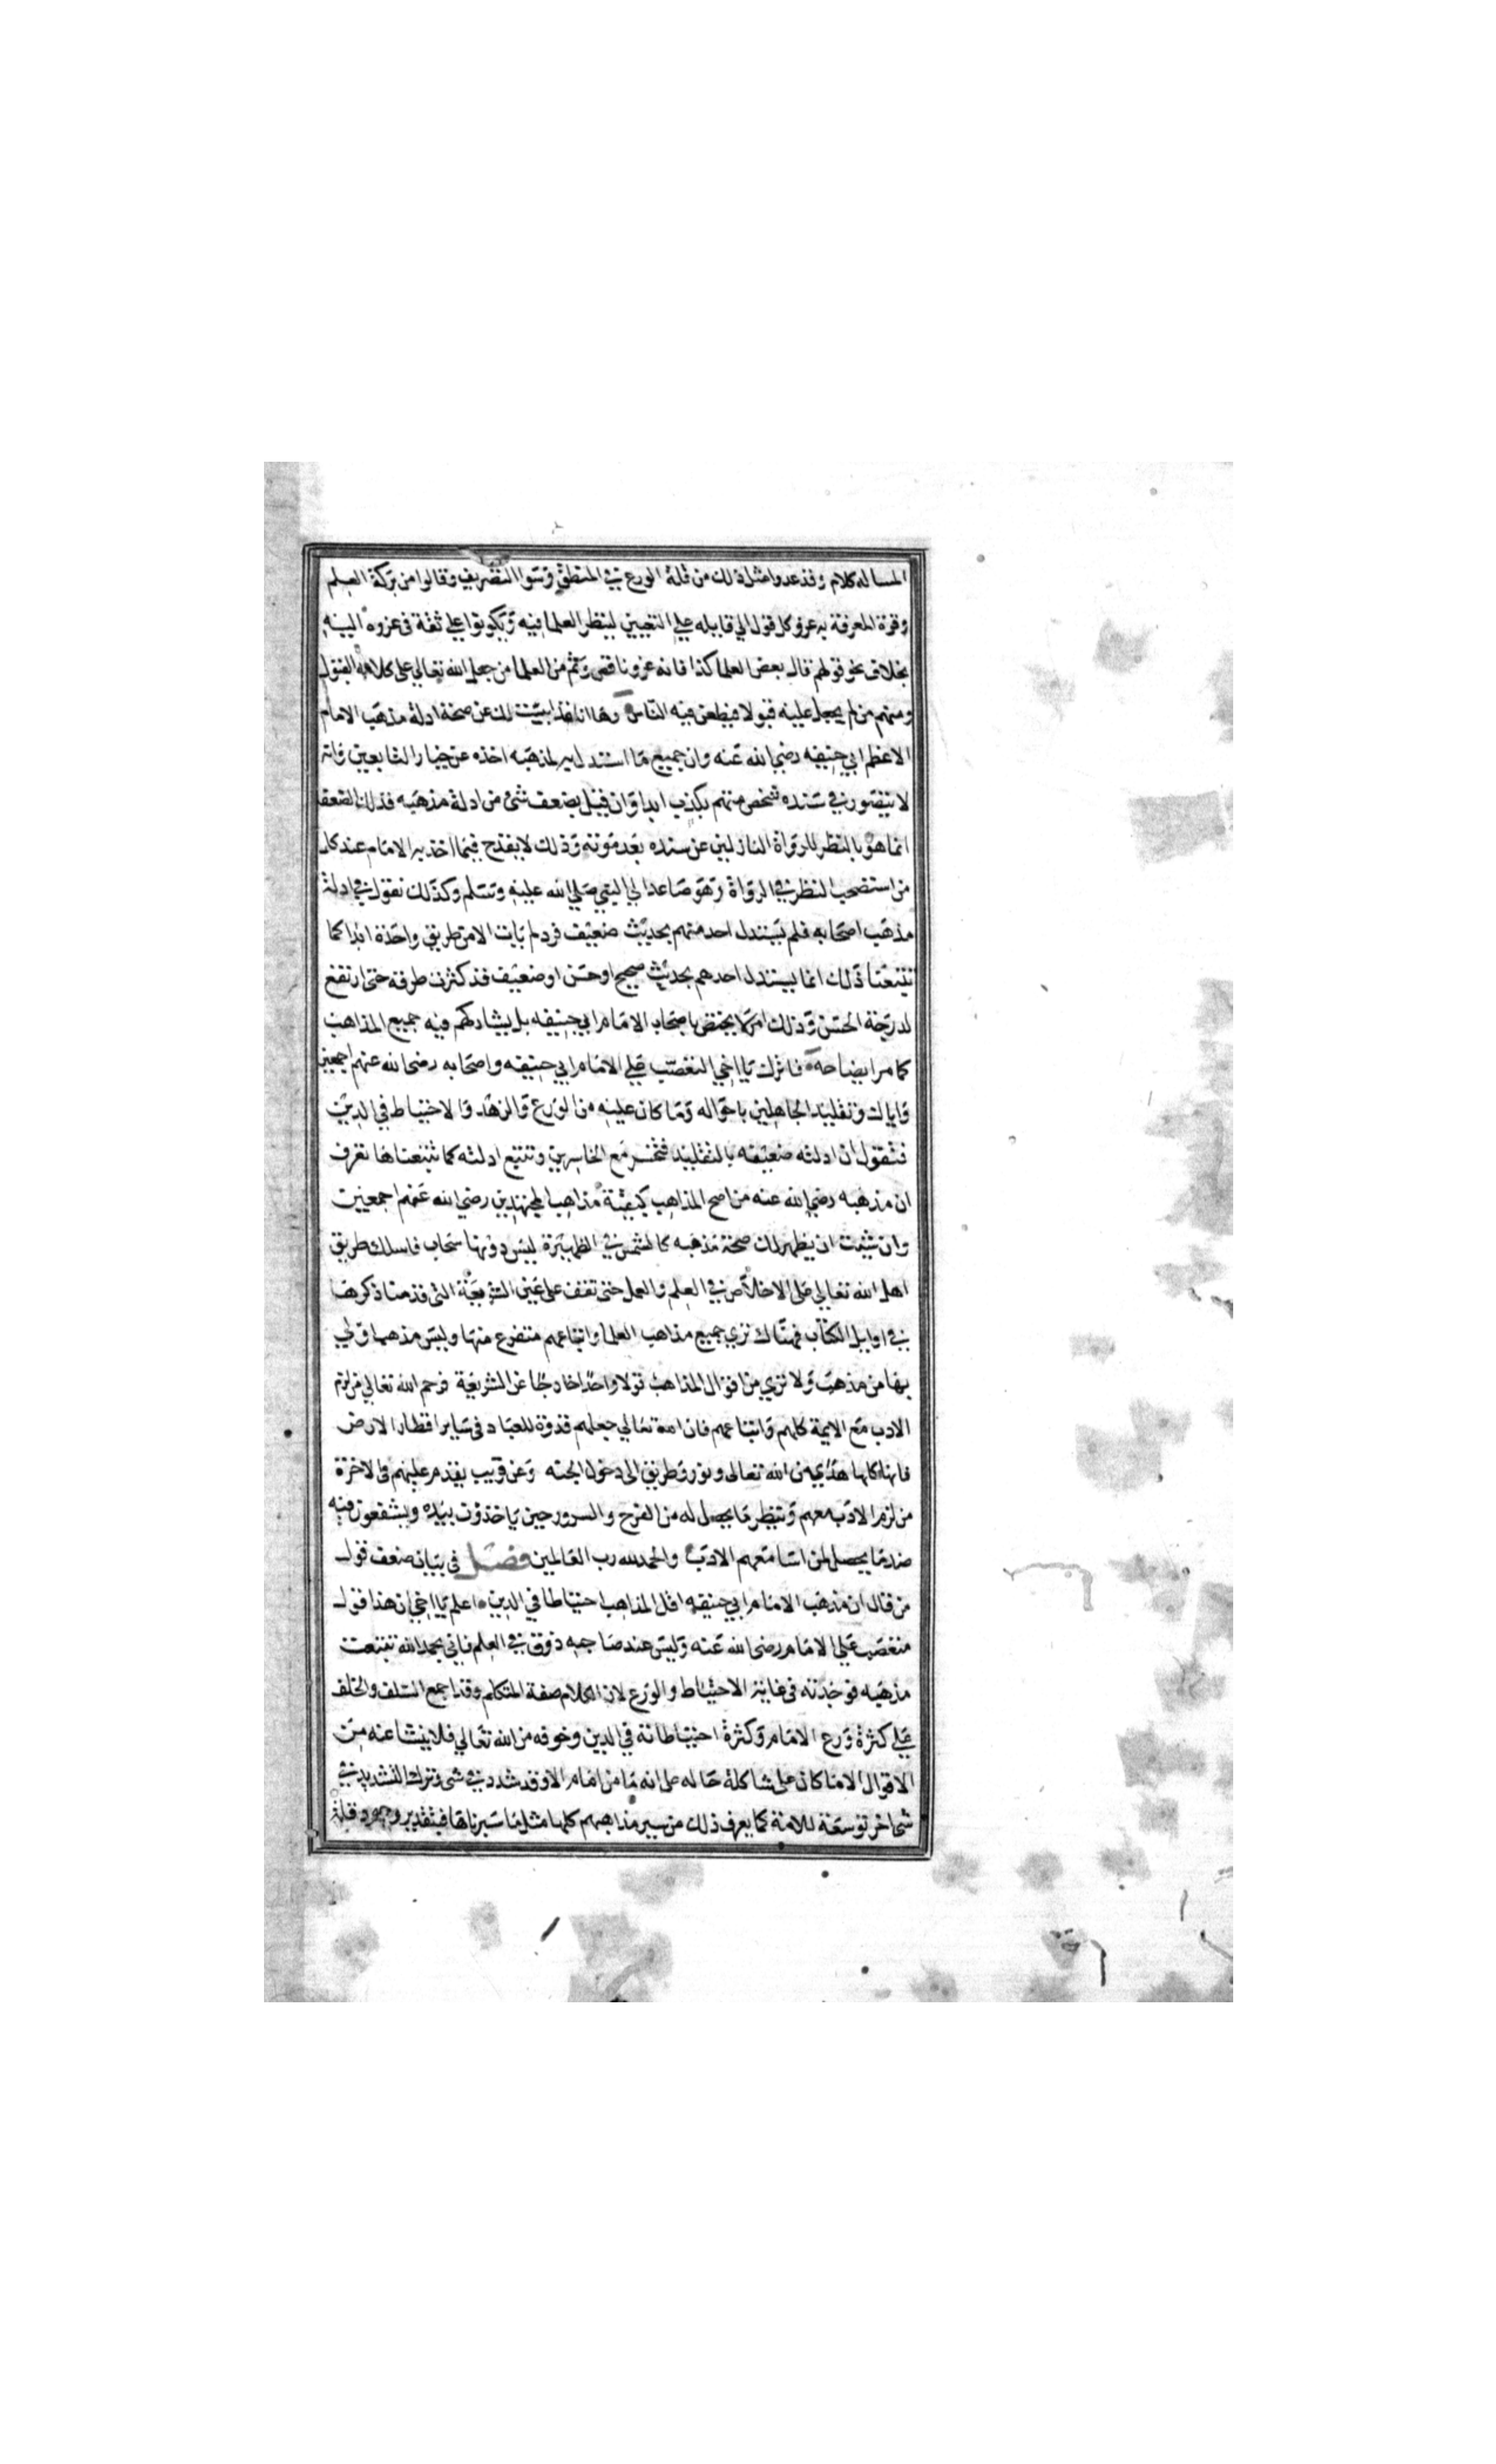 المساله كلام وقد عدوا مثل ذلك من قلة الورع في المنطق وسوا التصريف وقالوا من بركة العلم
وقوة المعرفة به عزو كل قول الي قايله علي التعيين لينظر العلما فيه ويكونوا علي ثقة في عزوه اليه
بخلاف نحو قولهم قال بعض العلما كذا فانه عزو ناقص وثم من العلما من جعل الله تعالي على كلامه القبول
ومنهم من لم يجعل عليه قبولا فيطعن فيه الناس وها انا قد ابنت لك عن صحة ادلة مذهب الامام
الاعظم ابي حنيفه رضي الله عنه وان جميع ما استدل به لمذهبه اخذه عن خيار التابعين وانه
لا يتصور في سنده شخص متهم بكذب ابدا وان قيل بضعف شئ من ادلة مذهبه فذلك الضعف
انما هو بالنظر للرواة النازلين عن سنده بعد موته وذلك لا يقدح فيما اخذ به الامام عند كل
من استصحب النظر في الرواة وهو صاعد الي النبي صلي الله عليه وسلم وكذلك نقول في ادلة
مذهب اصحابه فلم يستدل احد منهم بحديث ضعيف فرد لم يات الا من طريق واحدة ابدا كما
تتبعنا ذلك انما يستدل احدهم بحديث صحيح او حسن او ضعيف قد كثرت طرقه حتى ارتفع
لدرجة الحسن وذلك امر لا يختص باصحاب الامام ابي حنيفه بل يشاركهم فيه جميع المذاهب
كما مر ايضاحه فاترك يا اخي التعصب علي الامام ابي حنيفه واصحابه رضي الله عنهم اجمعين
واياك وتقليد الجاهلين باحواله وما كان عليه من الورع والزهد والاحتياط في الدين
فتقول ان ادلته ضعيفه بالتقليد فتحشر مع الخاسرين وتتبع ادلته كما تتبعناها تعرف
ان مذهبه رضي الله عنه من اصح المذاهب كبقية مذاهب المجتهدين رضي الله عنهم اجمعين
وان شيت ان يظهر لك صحة مذهبه كالشمس في الظهيرة ليس دونها سحاب فاسلك طريق
اهل الله تعالي على الاخلاص في العلم والعمل حتى تقف على عين الشريعة التي قدمنا ذكرها
في اوايل الكتاب فهناك تري جميع مذاهب العلما واتباعهم متفرع منها وليس مذهب اولي
بها من مذهب ولا تري من اقوال المذاهب قولا واحدا خارجا عن الشريعة فرحم الله تعالي من لزم
الادب مع الايمة كلهم واتباعهم فان الله تعالي جعلهم قدوة للعباد في ساير اقطار الارض
فانها كلها هدي من الله تعالى ونور وطريق الى دخول الجنه وعن قريب يقدم عليهم في الاخرة
من لزم الادب معهم وينظر ما يحصل له من الفرح والسرور حين ياخذون بيده ويشفعون فيه
ضد ما يحصل لمن اسا معهم الادب والحمد لله رب العالمين فصل في بيان ضعف قول
من قال ان مذهب الامام ابي حنيفه اقل المذاهب احتياطا في الدين اعلم يا اخي ان هذا قول
متعصب علي الامام رضي الله عنه وليس عند صاحبه ذوق في العلم فاني بحمد الله تتبعت
مذهبه فوجدته في غاية الاحتياط والورع لان الكلام صفة المتكلم وقد اجمع السلف والخلف
علي كثرة ورع الامام وكثرة احتياطاته في الدين وخوفه من الله تعالي فلا ينشا عنه من
الاقوال الا ما كان على شاكلة حاله على انه ما من امام الا وقد شدد في شي وترك التشديد في
شي اخر توسعة للامة كما يعرف ذلك من سبر مذاهبهم كلها مثل ما سبرناها فبتقدير وجود قلة